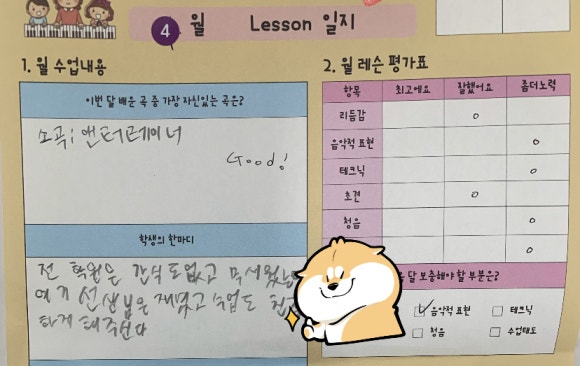 4월 Lesson 일지
1. 월 수업내용
이번 달 배운 곡 중 가장 자신있는 곡은?
소곡: 엔터테이너
Good!
학생의 한마디
전 학원은 간식도 없고 무서웠는
여기 선생님은 재밌고 수업도 친
하게 해주신다
2. 월 레슨 평가표
항목 최고예요 잘했어요 좀더노력
리듬감 o
음악적 표현 o
테크닉 o
초견 o
청음 o
o
달 보충해야 할 부분은?
✓ 음악적 표현 □ 테크닉
□ 청음 □ 수업태도